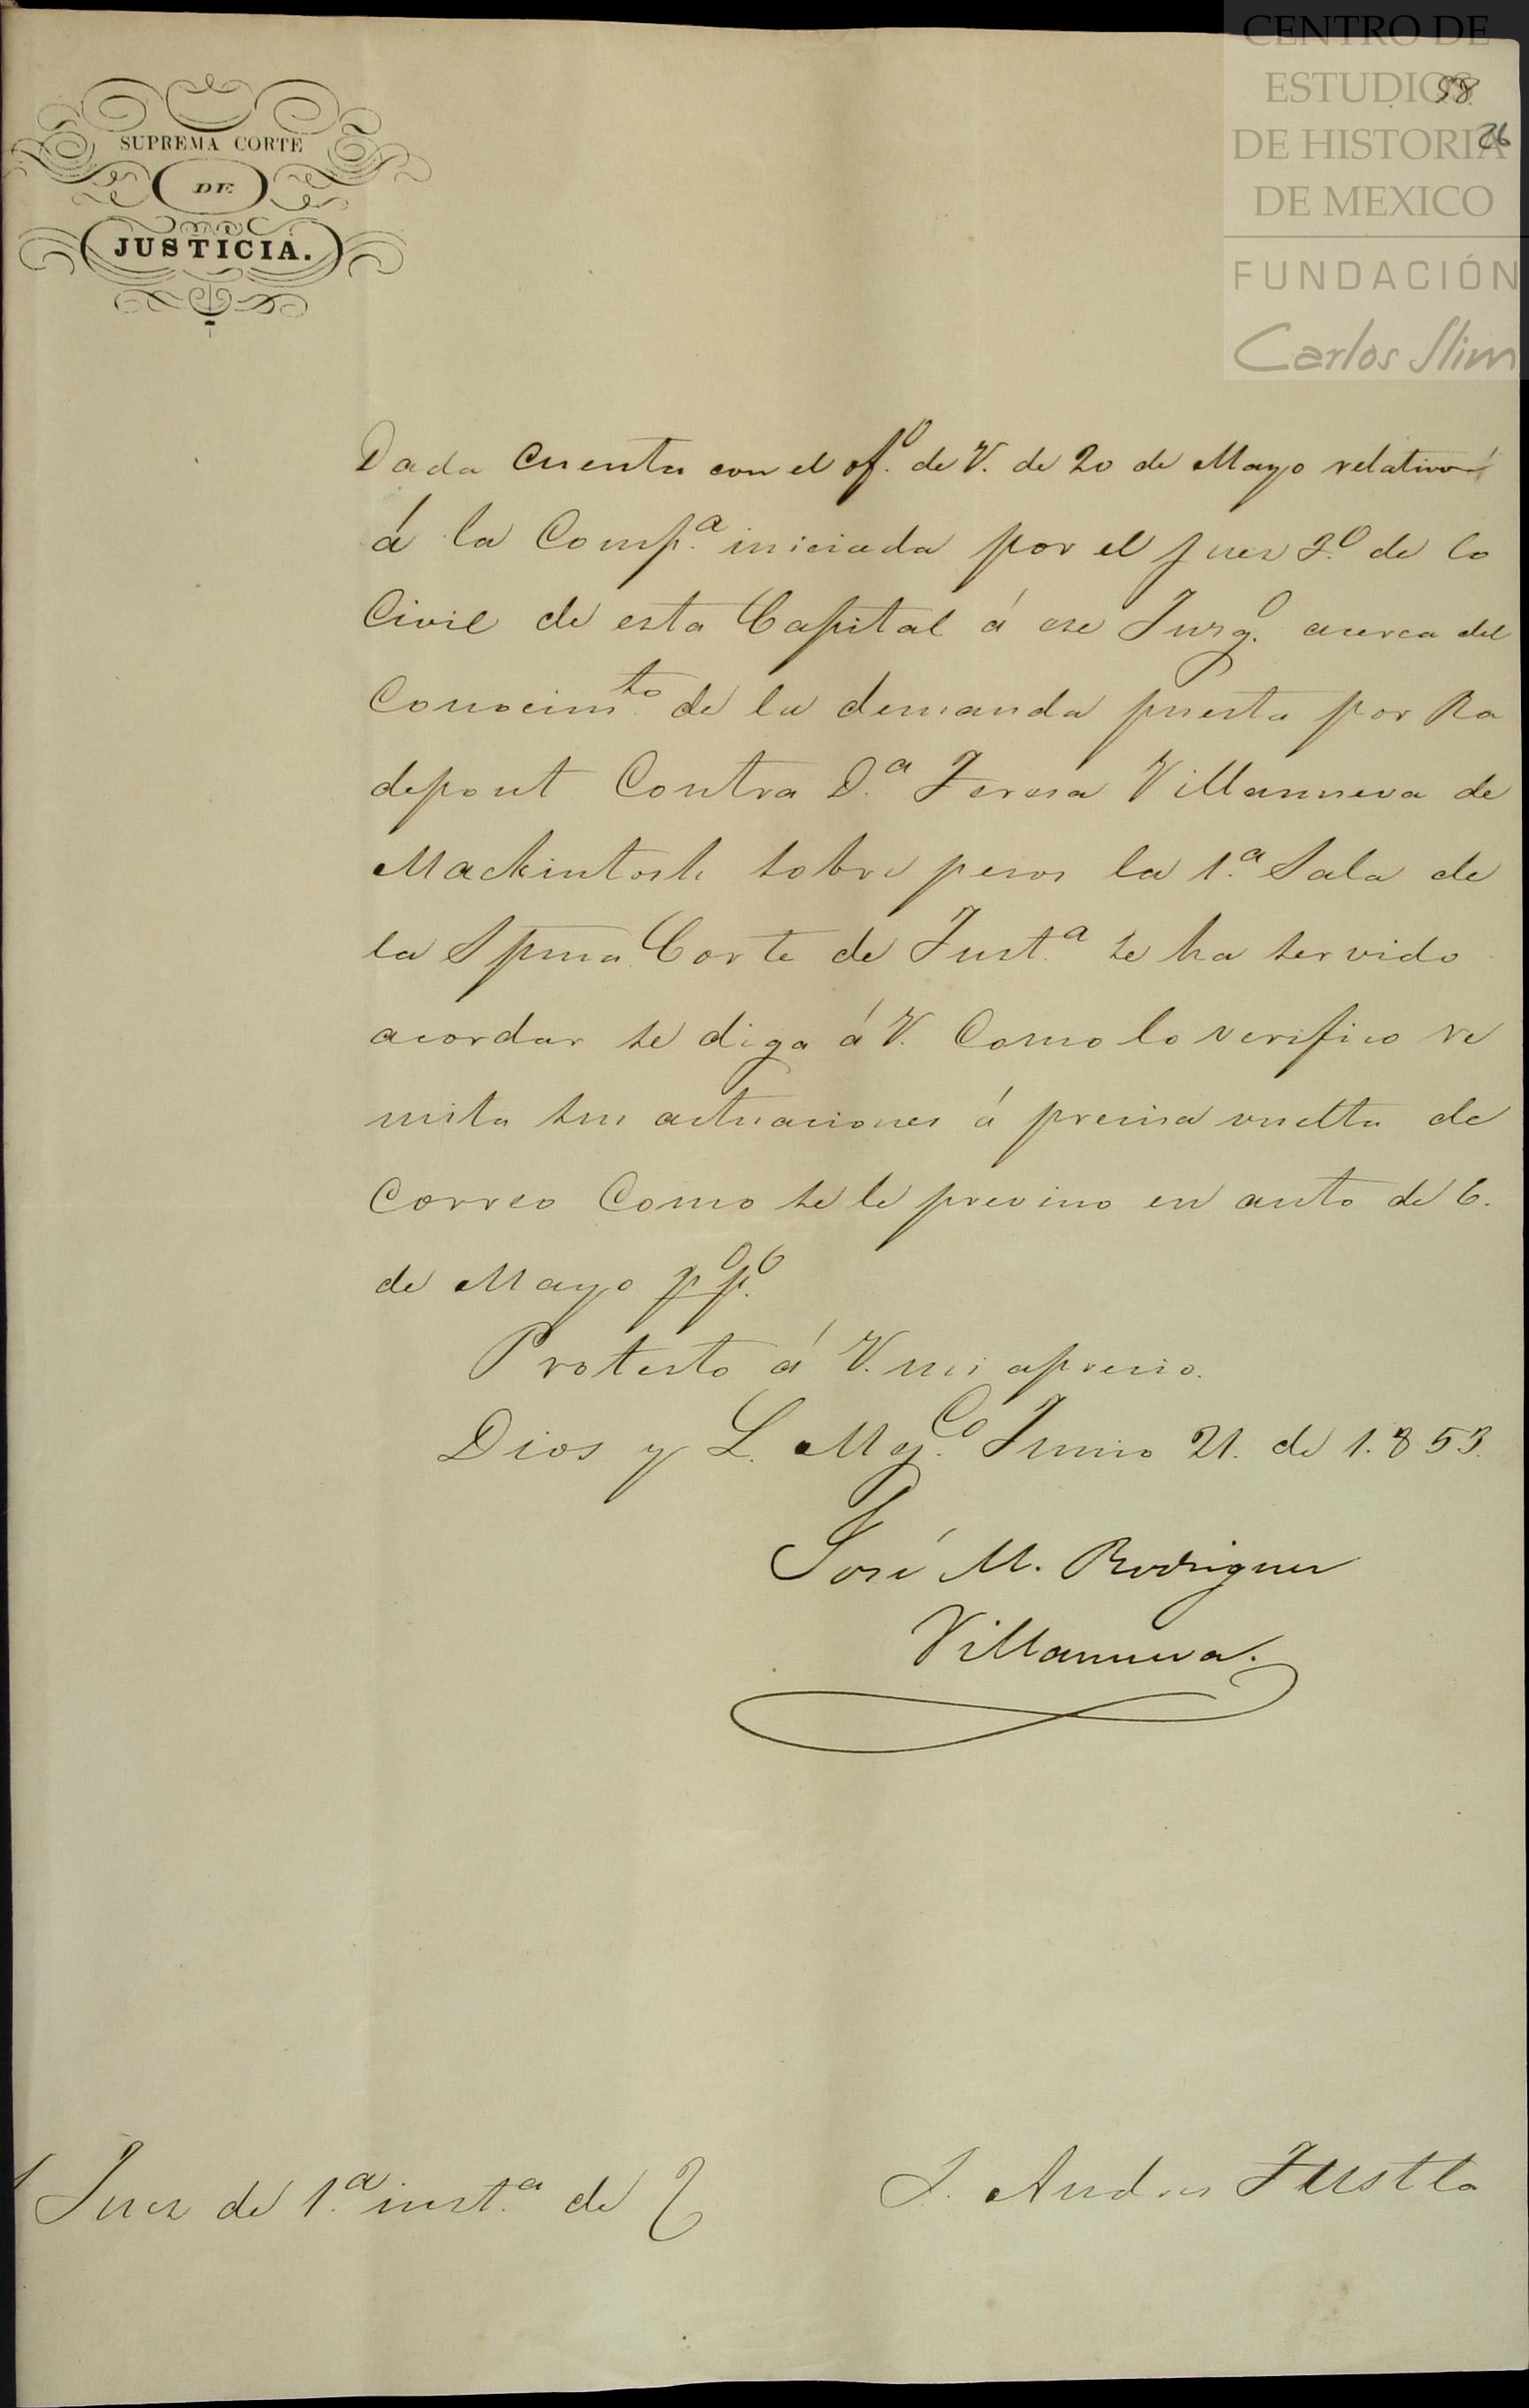 SUPREMA CORTE
DE
JUSTICIA.
CENTRO DE
ESTUDIOS
DE HISTORIA
DE MEXICO
FUNDACIÓN
Carlos Slim
58
26
Dada cuenta con el of.º de V. de 20 de Mayo relativo
á la Comp.ª iniciada por el juez 2.º de lo
Civil de esta Capital á ese Juzg.º acerca del
Conocim.to de la demanda puesta por Ra
depont Contra D.ª Teresa Villanueva de
Mackintosh sobre pesos la 1.ª Sala de
la Spma Corte de Just.ª se ha servido
acordar se diga á V. Como lo verifico re
mita sus actuaciones á precisa vuelta de
Correo Como se le previno en auto de 6.
de Mayo pº pº.
Protesto á V. mi aprecio.
Dios y L. Mej.co Junio 21. de 1.853.
José M. Rodriguez
Villanueva.
Juez de 1.ª inst.ª de
S. Andres Tustla